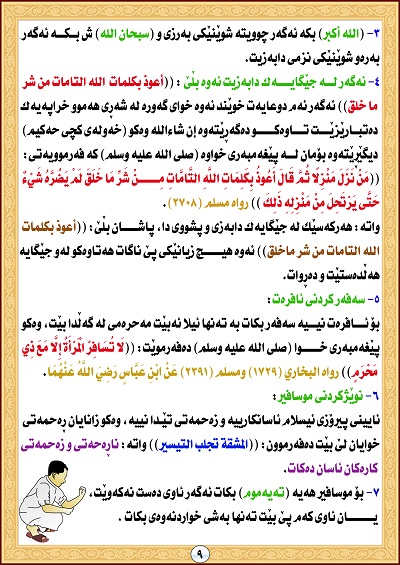 ٣- (الله أكبر) بكه ئهگهر چوويته شوێنێكی بهرزی و (سبحان الله) ش بكه ئهگهر
بهرهو شوێنێكی نزمی دابهزيت.
٤- ئهگهر له جێگايهك دابهزيت ئهوه بڵێ : ((أعوذ بكلمات الله التامات من شر
ما خلق)) ئهگهر ئهم دوعايهت خوێند ئهوه خوای گهوره له شهڕی ههموو خراپهيهك
دهتپارێزێت تاوهكو دهگهڕێتهوه إن شاءالله وهكو (خهولهی كچی حهكيم)
ديگێڕێتهوه بۆمان له پێغهمبهری خواوه (صلى الله عليه وسلم) كه فهرموويهتی :
((مَنْ نَزَلَ مَنْزِلًا ثُمَّ قَالَ أَعُوذُ بِكَلِمَاتِ اللَّهِ التَّامَّاتِ مِنْ شَرِّ مَا خَلَقَ لَمْ يَضُرَّهُ شَيْءٌ
حَتَّى يَرْتَحِلَ مِنْ مَنْزِلِهِ ذَلِكَ)) رواه مسلم (٢٧٠٨).
واته : ههركهسێك له جێگايهك دابهزی و پشووی دا، پاشان بڵێ : ((أعوذ بكلمات
الله التامات من شر ماخلق)) ئهوه هيچ زيانێكی پێ ناگات ههتاوهكو لهو جێگايه
ههڵدهستێت و دهڕوات.
٥- سهفهر كردنی ئافرهت :
بۆ ئافرهت نييه سهفهر بكات به تهنها ئيلا ئهبێت مهحرهمی له گهڵدا بێت، وهكو
پێغهمبهری خوا (صلى الله عليه وسلم) دهفهرموێت : ((لَا تُسَافِرُ الْمَرْأَةُ إِلَّا مَعَ ذِي
مَحْرَمٍ)) رواه البخاري (١٧٢٩) ومسلم (٢٣٩١) عَنْ ابْنِ عَبَّاسٍ رَضِيَ اللَّهُ عَنْهُمَا.
٦- نوێژكردنی موسافير :
ئايينی پيرۆزی ئيسلام ئاسانكارييه و زهحمهتی تێدا نييه ، وهكو زانايان ڕهحمهتی
خوايان لێ بێت دهفهرموون : ((المشقة تجلب التيسير)) واته : ناڕهحهتی و زهحمهتی
كارهكان ئاسان دهكات.
٧- بۆ موسافير ههيه (تهيهموم) بكات ئهگهر ئاوی دهست نهكهوێت،
يان ئاوی كهم پێ بێت تهنها بهشی خواردنهوهی بكات .
٩